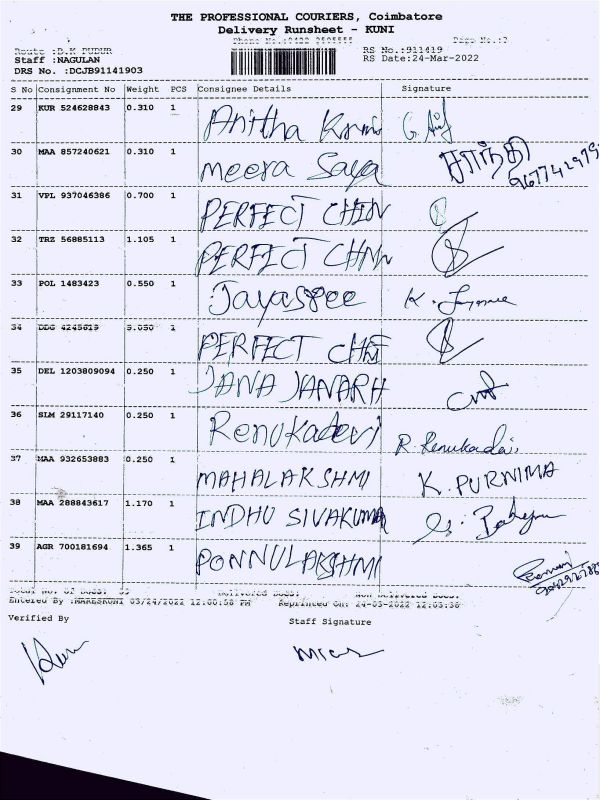 THE PROFESSIONAL COURIERS, Coimbatore
Delivery Runsheet - KUNI
Route :D.K PUDUR Page No.:3
Staff :NAGULAN RS No.:911419
DRS No. :DCJB91141903 RS Date:24-Mar-2022
S No Consignment No Weight PCS Consignee Details Signature
29 KUR 524628843 0.310 1 Anitha
30 MAA 857240621 0.310 1 meera Saya சாந்தி
31 VPL 937046386 0.700 1 PERFECT CHIN
32 TRZ 56885113 1.105 1 PERFECT
33 POL 1483423 0.550 1 Jayasree
34 DDG 4245619 5.050 1 PERFECT
35 DEL 1203809094 0.250 1 JANA JANARH
36 SLM 29117140 0.250 1 Renukadevi R. Renukadevi
37 MAA 932653883 0.250 1 MAHALAKSHMI K. PURNIMA
38 MAA 288843617 1.170 1 INDHU SIVAKUMAR
39 AGR 700181694 1.365 1 PONNULAKSHMI
Total No. of Docs: Delivered Docs: Non Delivered Docs:
Entered By :MARESKUNI 03/24/2022 12:00:58 PM Reprinted On: 24-03-2022 12:03:38
Verified By Staff Signature